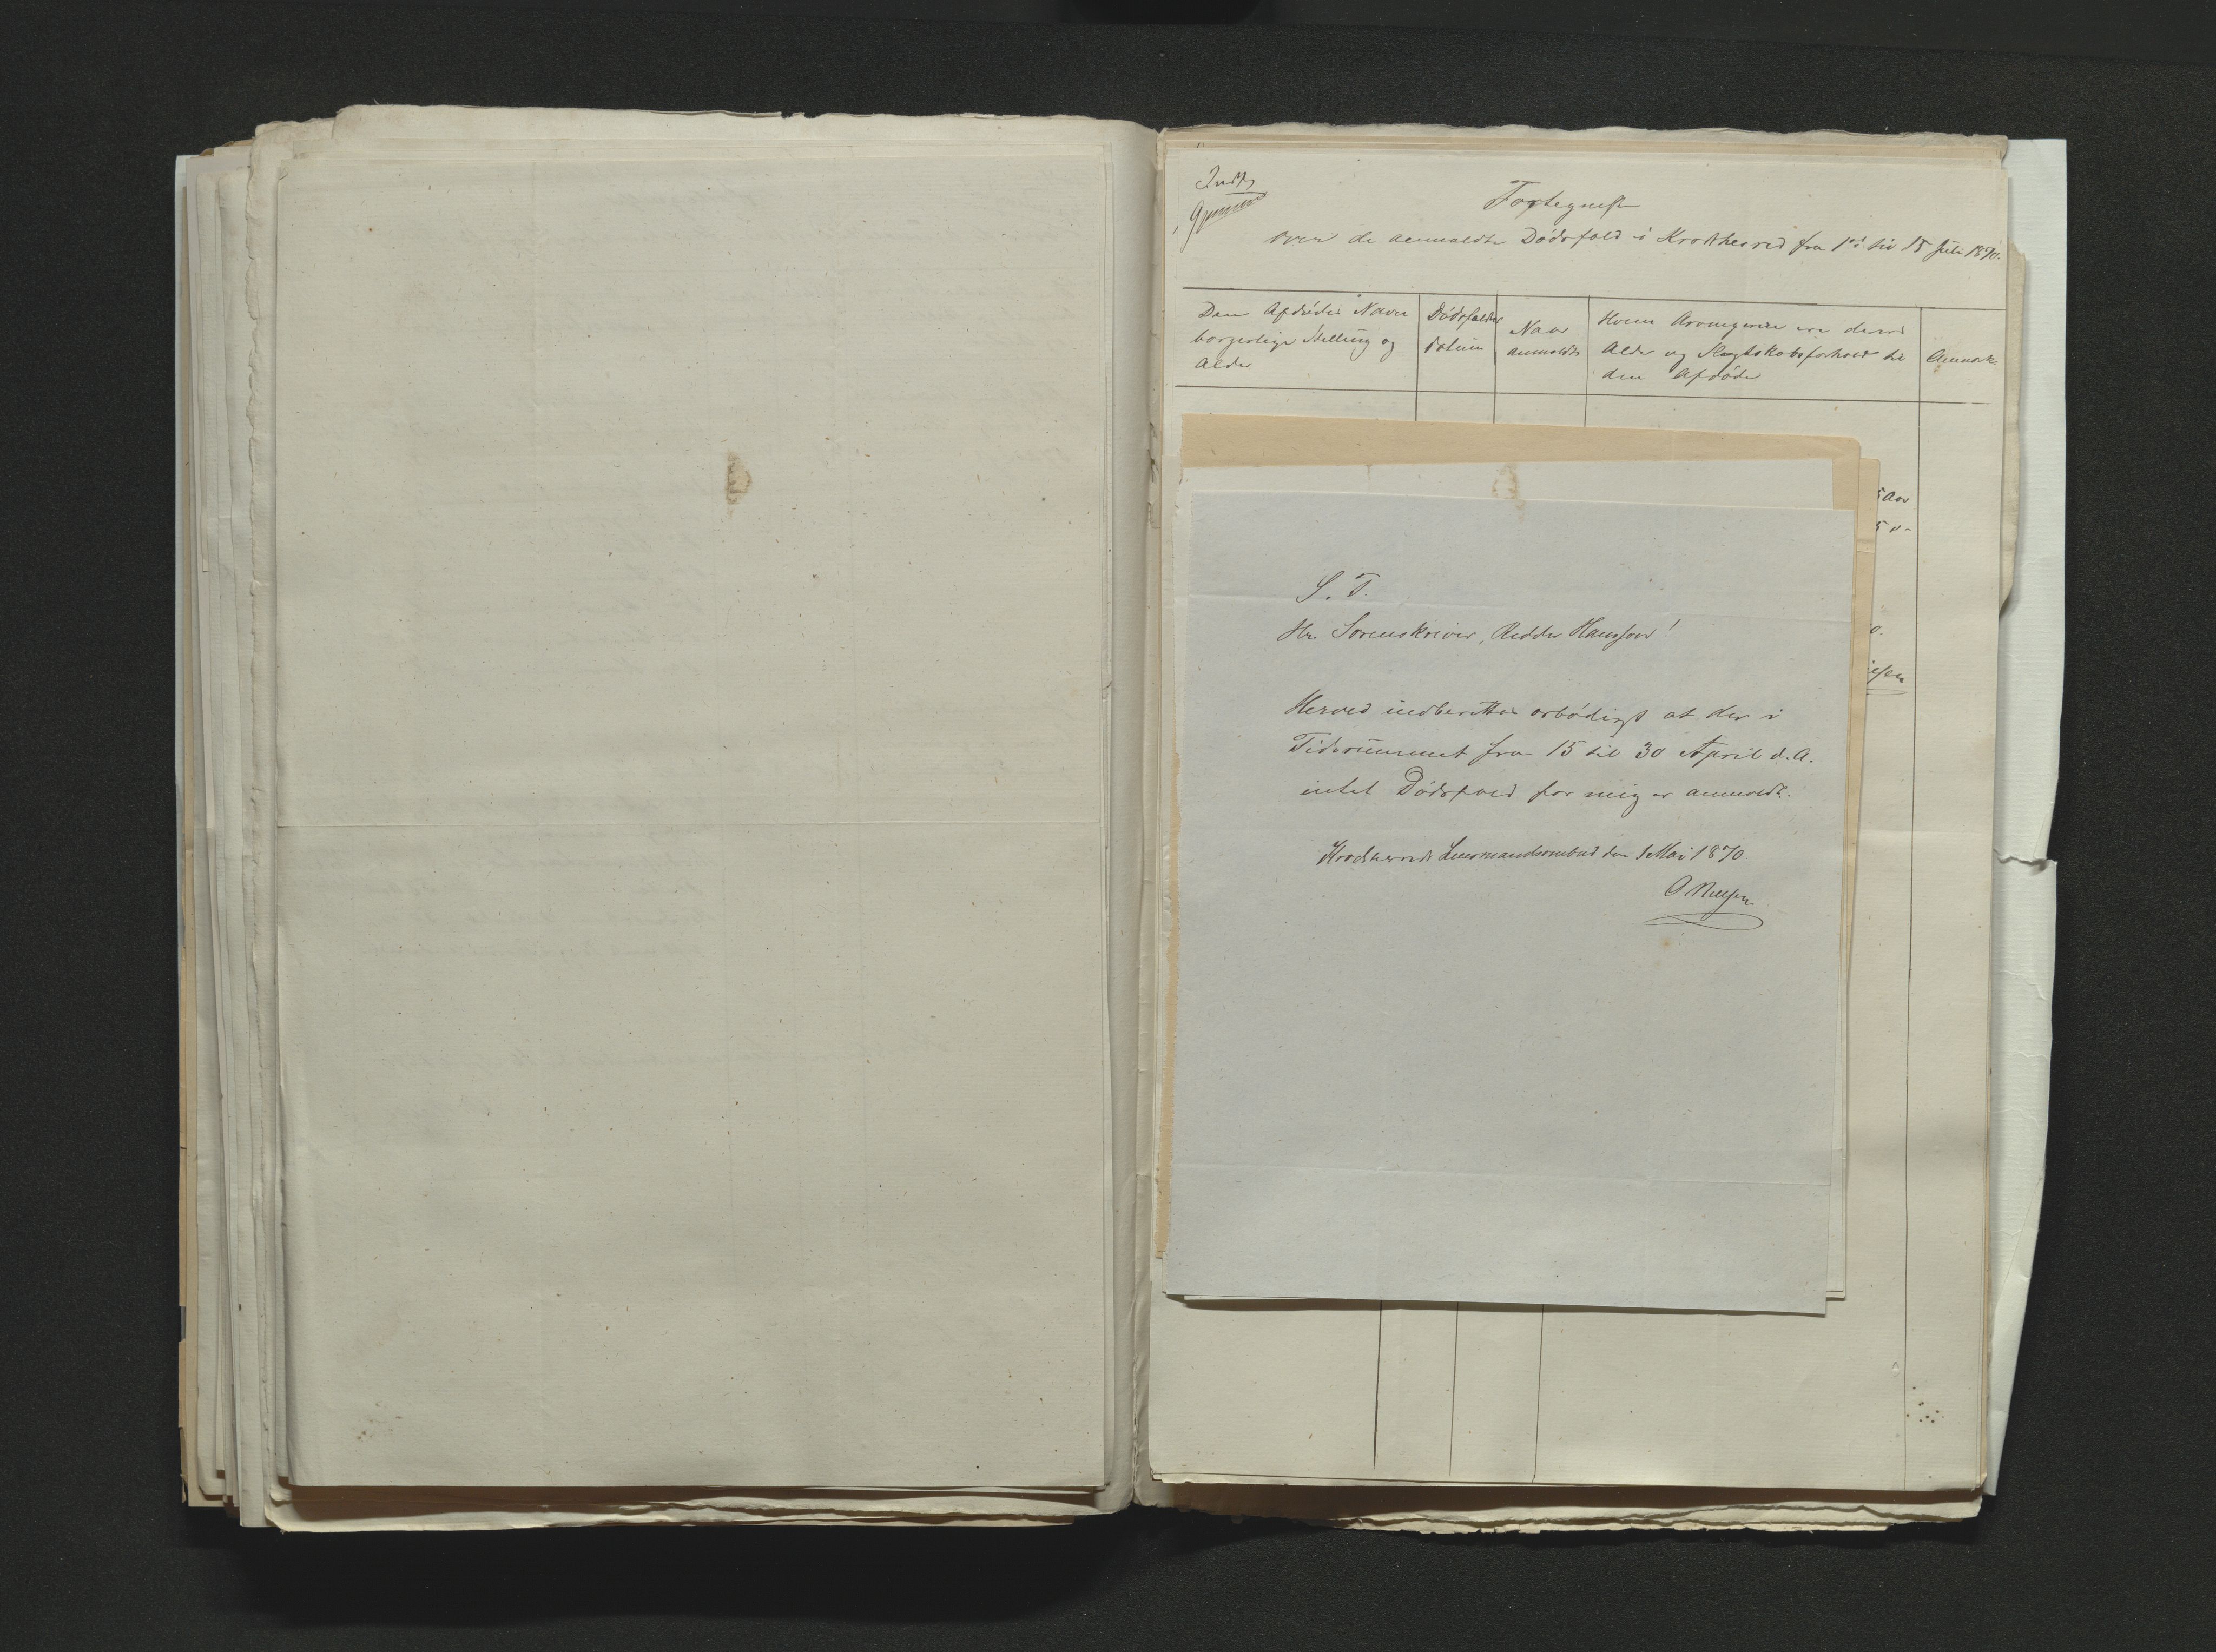 Indt,
Fortegnelse
over de anmeldte Dødsfald i Krødsherred fra 1ste til 15 Juli 1870.
Den Afdødes Navn
borgerlige Stilling og
Alder
Dødsfaldets
datum
Naar
anmeldt
Hvem Arvingerne ere deres
Alder og Slægtskabsforhold til
den Afdøde
Anmærk.
5 Aar
5 "-
0.
S. T.
Hr. Sorenskriver, Ridder Hansson!
Herved indberettes ærbødigst at der i
Tidsrummet fra 15 til 30 April d. A.
intet Dødsfald for mig er anmeldt.
Krødsherreds Lensmandsombud den 1 Mai 1870.
O. Nielsen